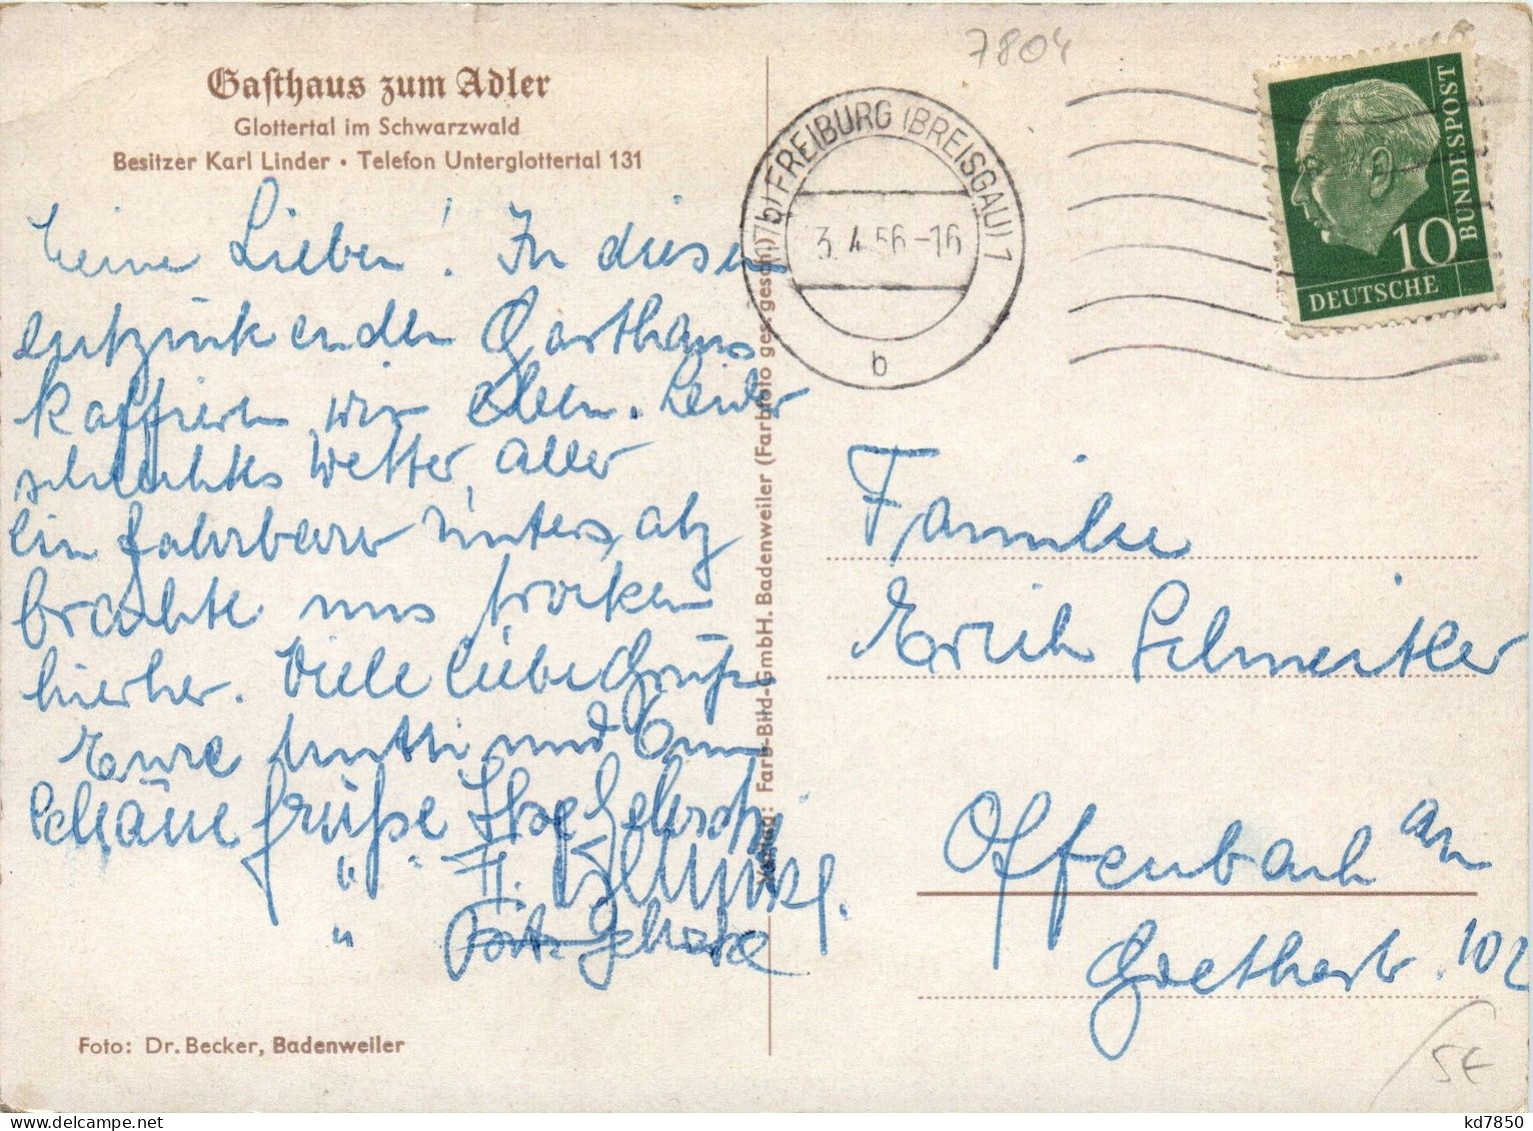 Gasthaus zum Adler
Glottertal im Schwarzwald
Besitzer Karl Linder • Telefon Unterglottertal 131
Meine Lieben! In diesem
entzückenden Gasthaus
kaffieren wir eben. Leider
schlechtes Wetter, aber
ein fahrbarer Untersatz
brachte uns trocken
hierher. Viele liebe Grüße
Eure Mutti und
Schöne Grüße Ilse
" "
"
Foto: Dr. Becker, Badenweiler
Verlag: Farb-Bild-GmbH. Badenweiler (Farbfoto ges. gesch.)
7804
(17b) FREIBURG (BREISGAU) 1
3.4.56-16
b
10
DEUTSCHE
BUNDESPOST
Familie
Erich
Offenbach am
Goethestr. 102
5€
kd7850